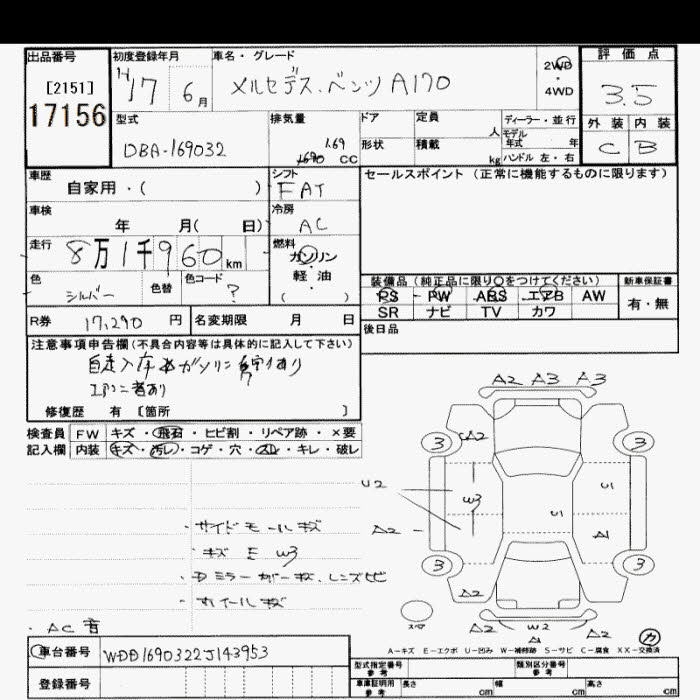 出品番号 初度登録年月 車名・グレード 評価点
[2151] 17 6月 メルセデス・ベンツ A170 2WD・4WD 3.5
17156 型式 排気量 ドア 定員 人 ディーラー・並行 外装 内装
DBA-169032 1.69 1690 cc 形状 積載 kg モデル年式 年 C B
ハンドル 左・右
車歴 シフト セールスポイント (正常に機能するものに限ります)
自家用・( ) FAT
車検 冷房
年 月( 日) AC
走行 8万1千960km 燃料
ガソリン・軽油
( )
色 シルバー 色替 色コード ? 装備品 (純正品に限り〇をつけてください) 新車保証書
PS PW ABS エアB AW 有・無
SR ナビ TV カワ
R券 17,290 円 名変期限 月 日 後日品
注意事項申告欄(不具合内容等は具体的に記入して下さい)
修復歴 有 [箇所 ]
A2 A3 A3
検査員 FW キズ・飛石・ヒビ割・リペア跡・×要
記入欄 内装 キズ・汚レ・コゲ・穴・スレ・キレ・破レ
3 A2 3
U2 W3 U1
U1
A2 A1
3 3
A2
A2 W2 A2
A1
・サイドモールキズ
・キズ E W3
・ホイールキズ
・AC 音
A-キズ E-エクボ U-凹み W-補修跡 S-サビ C-腐食 XX-交換済
車台番号 WDD1690322J143953
登録番号
型式指定番号 参考 類別区分番号 参考
車庫証明用 参考 長さ cm 幅 cm 高さ cm